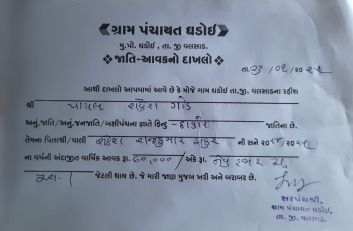 ગ્રામ પંચાયત ઘડોઈ
મુ.પો. ઘડોઈ, તા.જી વલસાડ.
જાતિ-આવકનો દાખલો
તા.
આથી દાખલો આપવામાં આવે છે કે મોજે ગામ ઘડોઈ તા.જી. વલસાડના રહીશ
શ્રી પાયલ રાકેશ
અનુ.જાતિ/અનુ.જનજાતિ/બક્ષીપંચના જ્ઞાતે હિન્દુ - ઠાકોર જાતિના છે.
તેમના પિતાશ્રી/વાલી રાકેશ રાજકુમાર ઠાકુર ની સને ૨૦
ના વર્ષની અંદાજીત વાર્ષિક આવક રૂા. /અંકે રૂા. હજાર
જેટલી થાય છે. જે મારી જાણ મુજબ ખરી અને બરાબર છે.
સરપંચશ્રી.
ગ્રામ પંચાયત ઘડોઇ.
તા. જી. વલસાડ.